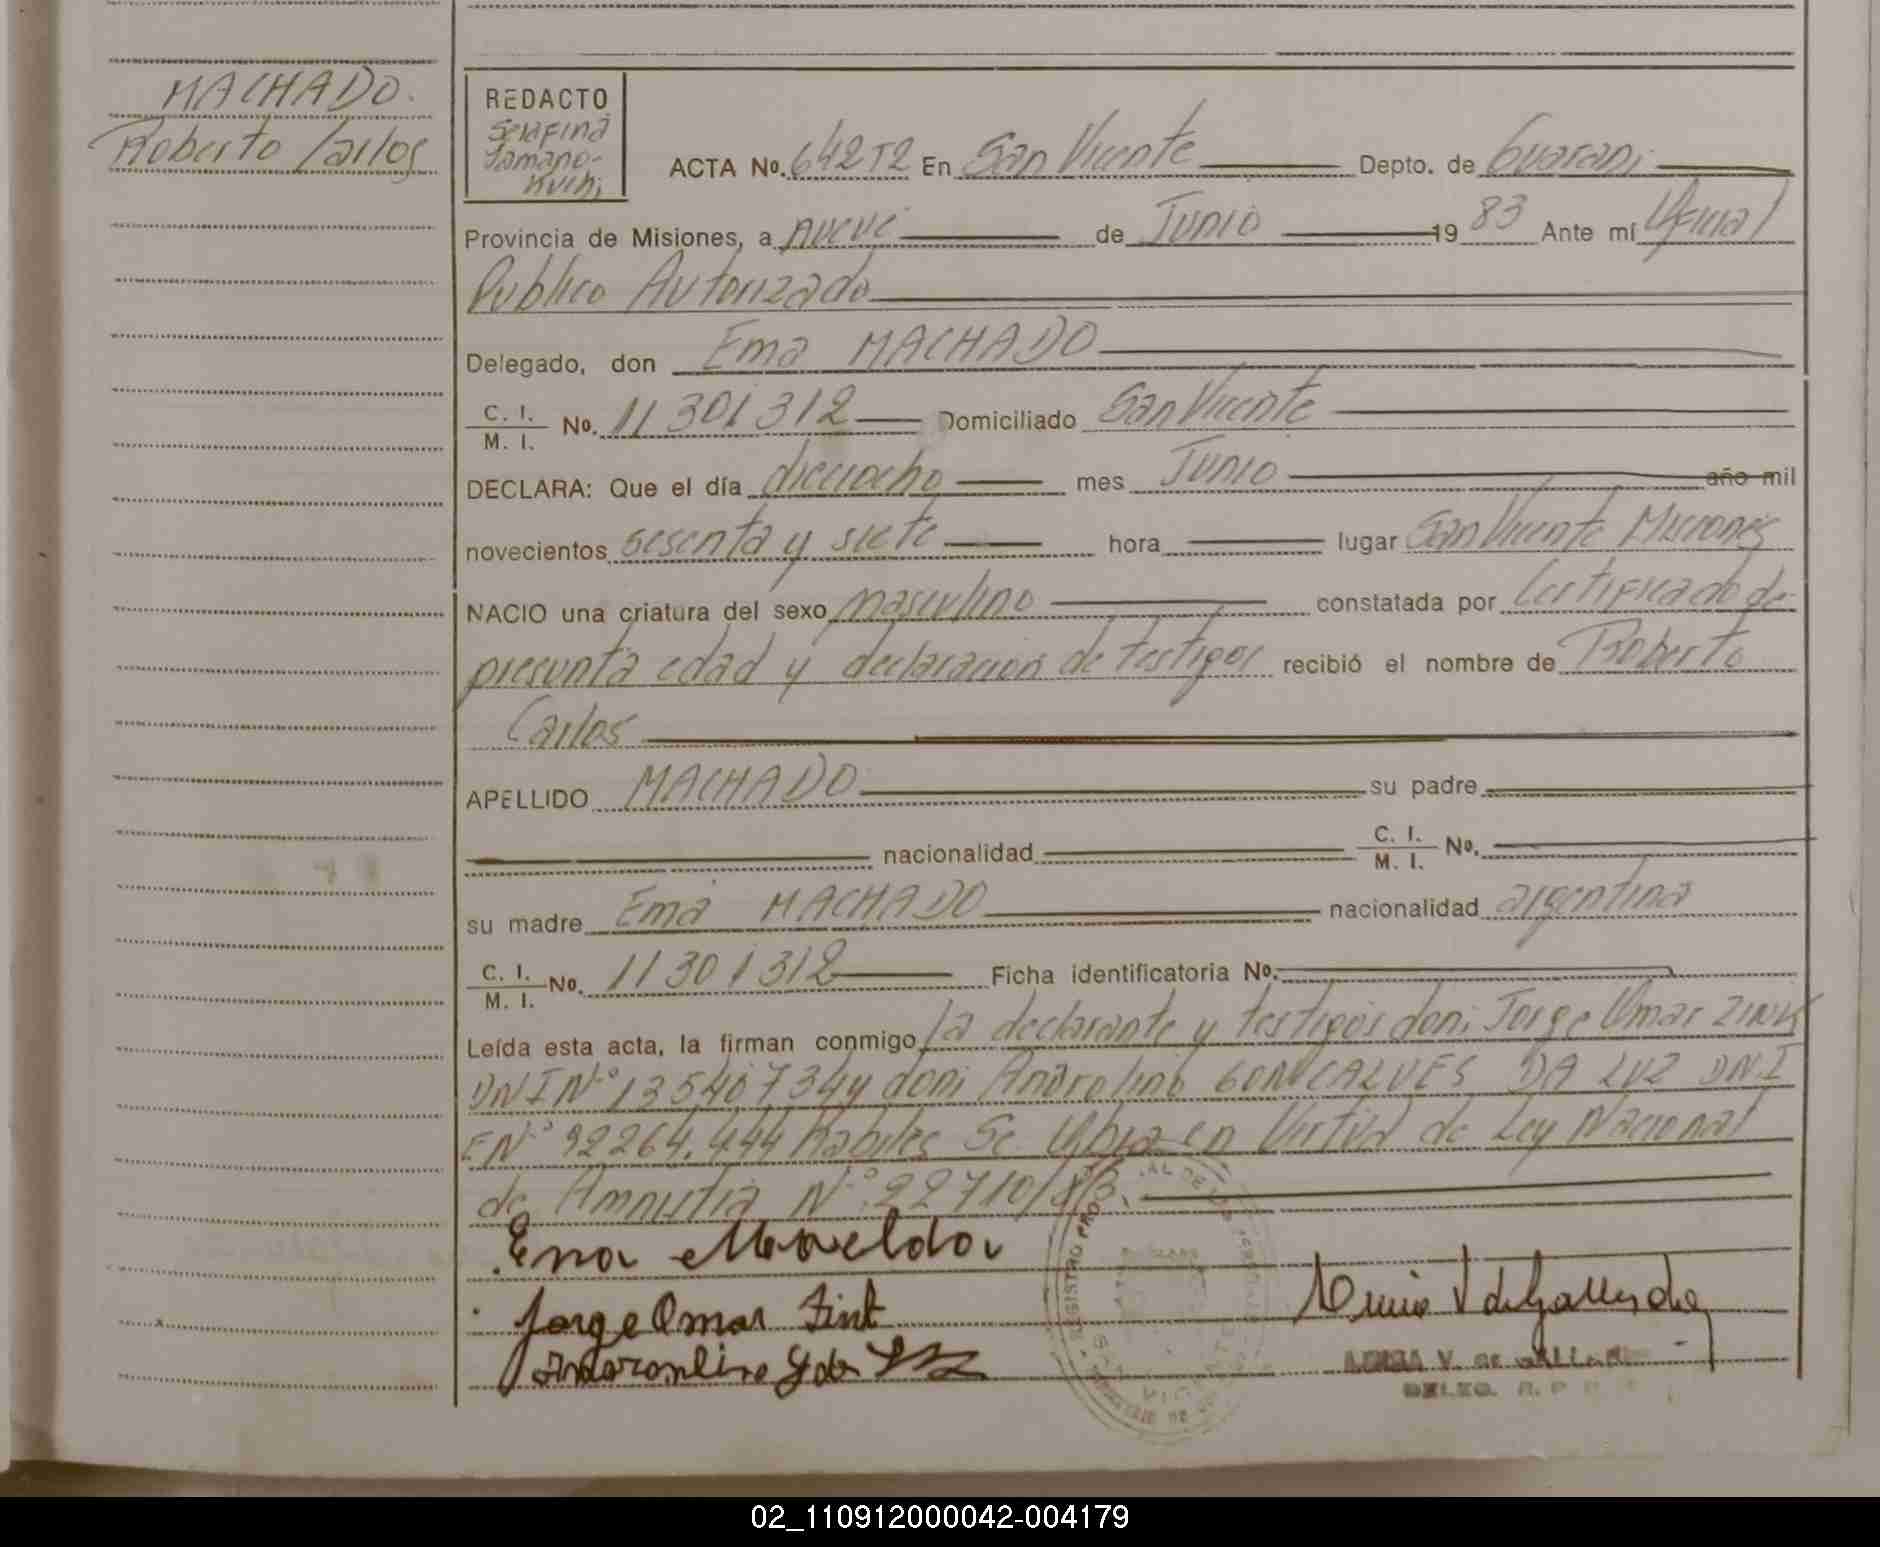 MACHADO.
Roberto Carlos
REDACTO
Serafina
Jamano-
ACTA No. 642 T2 En San Vicente Depto. de Guarani
Provincia de Misiones, a nueve de Junio 1983 Ante mí Oficial
Publico Autorizado
Delegado, don Ema MACHADO
C. I.
M. I. No. 11301312 Domiciliado San Vicente
DECLARA: Que el día dieciocho mes Junio año mil
novecientos sesenta y siete hora lugar San Vicente Misiones
NACIO una criatura del sexo masculino constatada por Certificado de
presunta edad y declaracion de testigos recibió el nombre de Roberto
Carlos
APELLIDO MACHADO su padre
nacionalidad C. I.
M. I. No.
su madre Ema MACHADO nacionalidad argentina
C. I.
M. I. No. 11301312 Ficha identificatoria No.
Leída esta acta, la firman conmigo la declarante y testigos don: Jorge Omar ZINK
DNI Nº 13540734 y don: Androlino GONCALVES DA LUZ DNI
EN° 92264.444 habiles Se Labra en Virtud de Ley Nacional
de Amnistia N° 22710/83.
Ema Machado
Jorge Omar Zink
REGISTRO
VICENTE
DELEG. R. P.
02_110912000042-004179